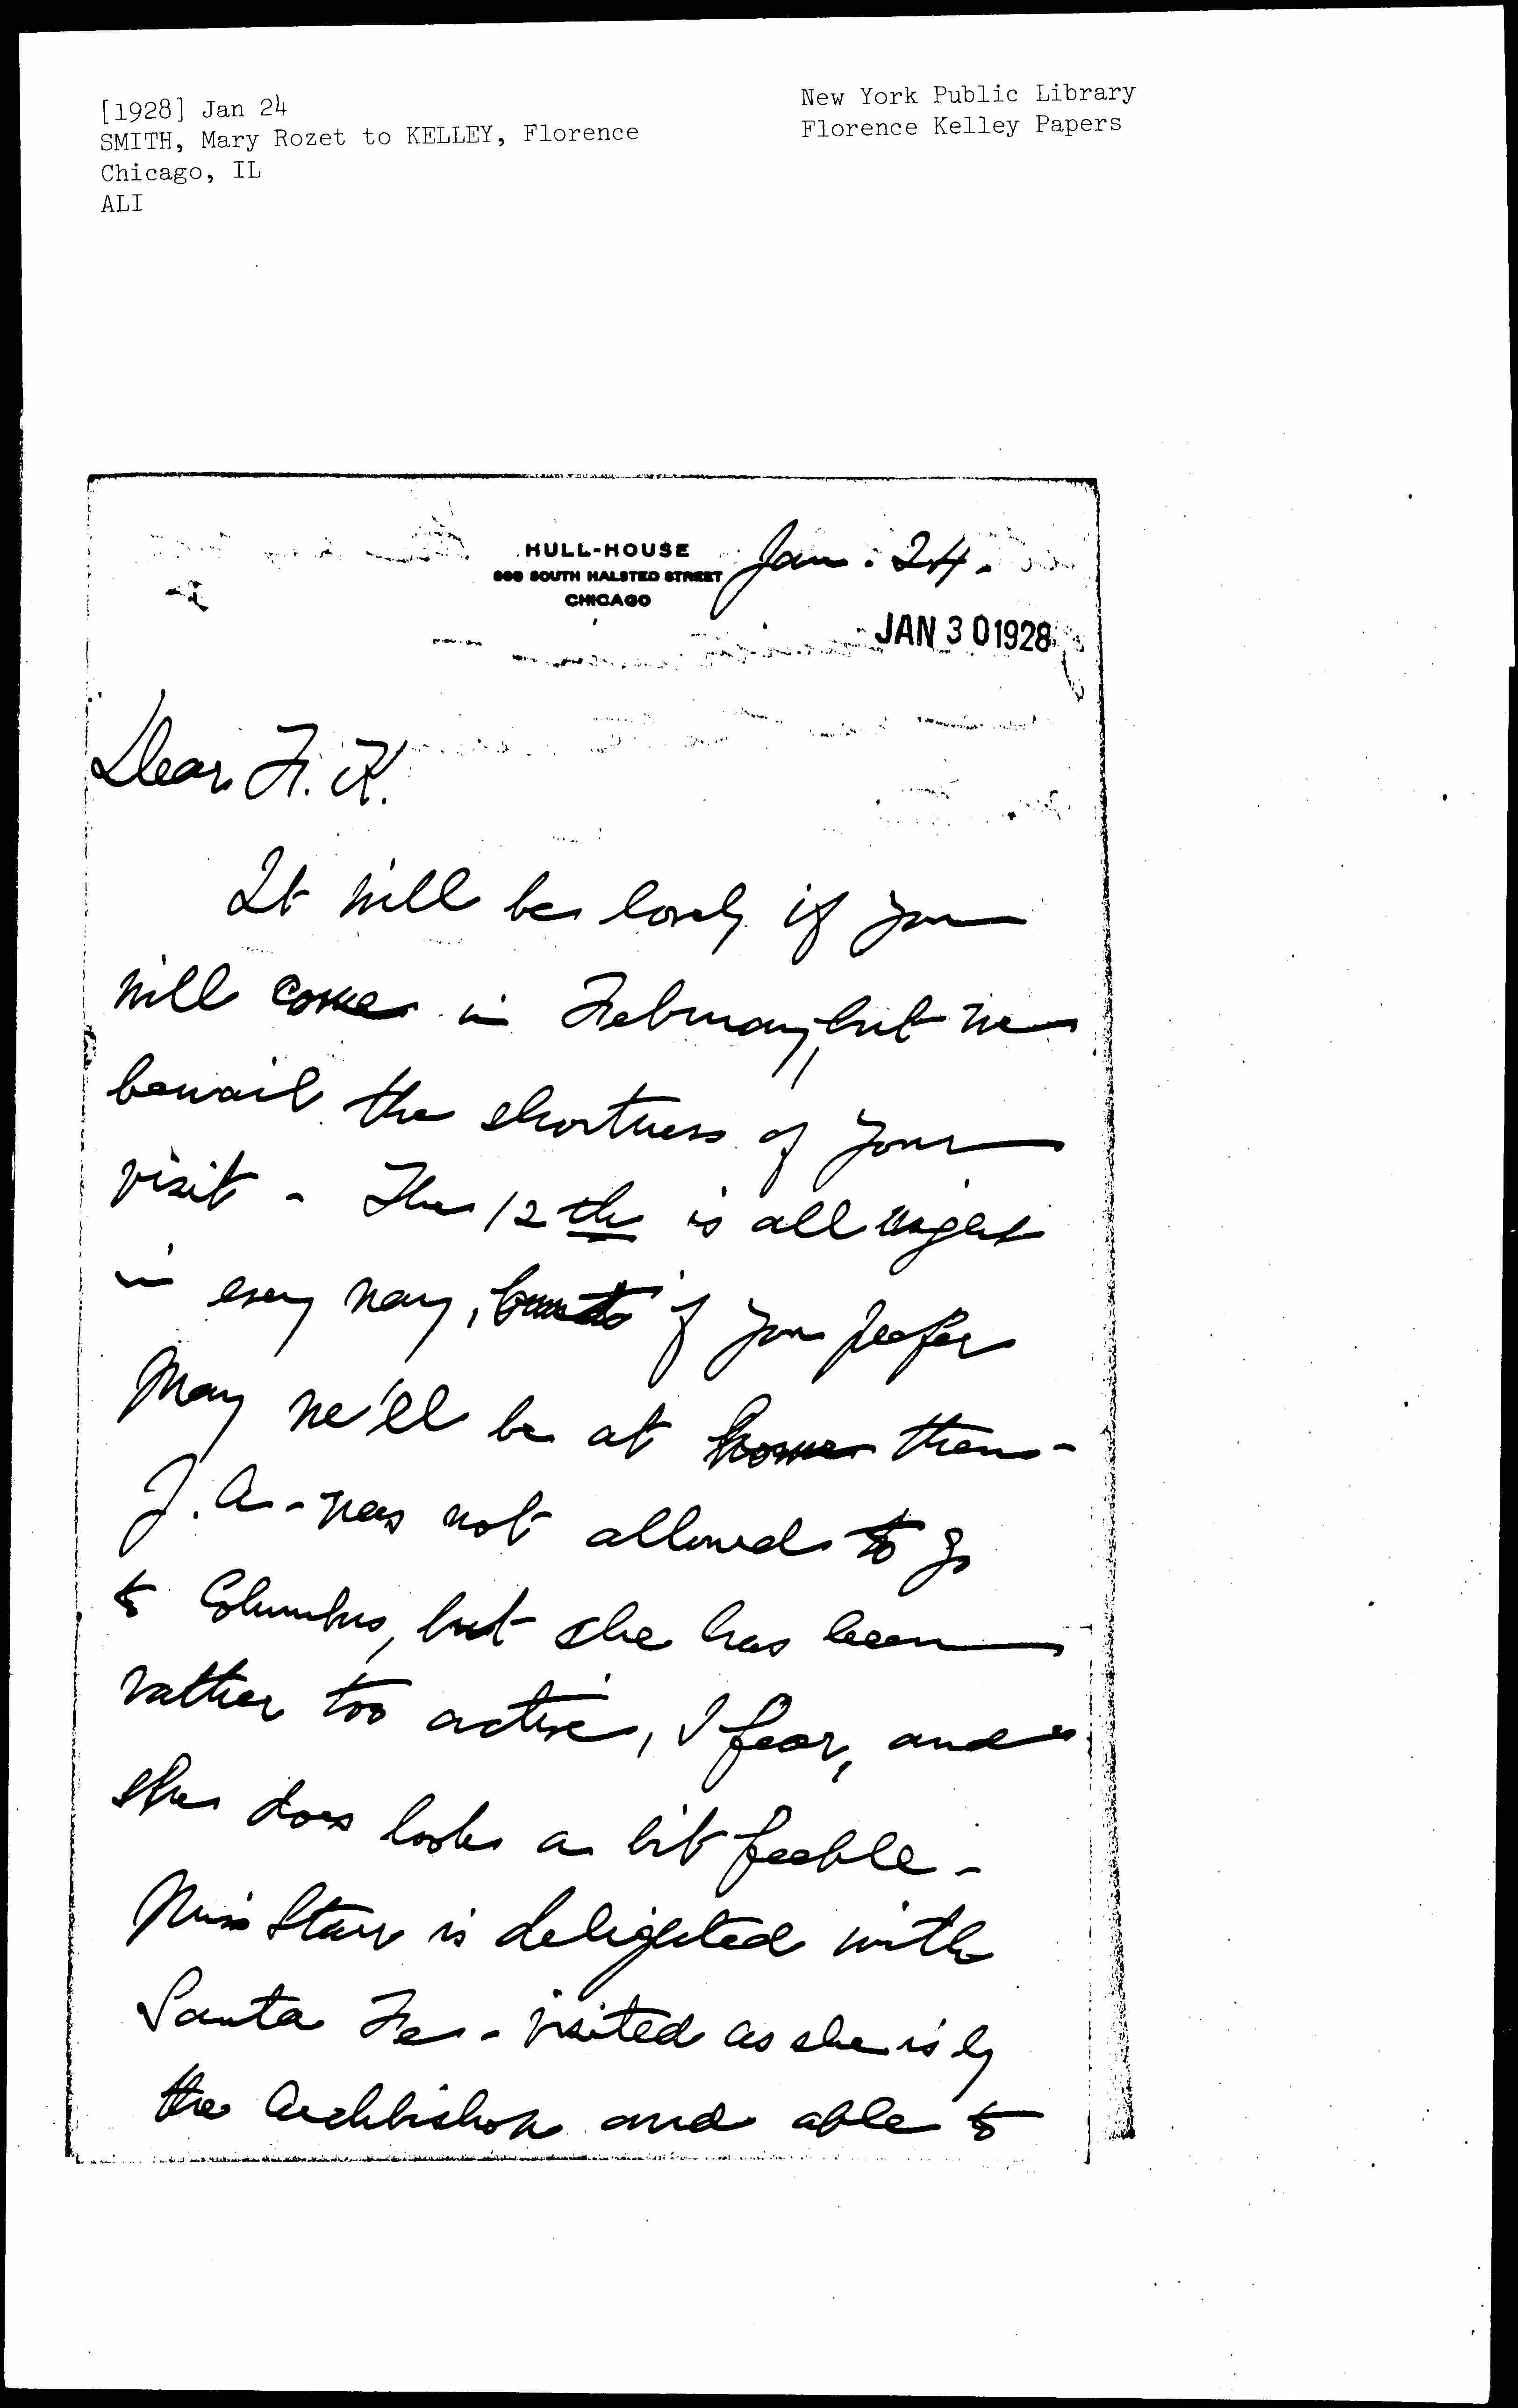 [1928] Jan 24
SMITH, Mary Rozet to KELLEY, Florence
Chicago, IL
ALI
New York Public Library
Florence Kelley Papers
HULL-HOUSE
800 SOUTH HALSTED STREET
CHICAGO
Jan. 24.
JAN 30 1928
Dear F. K.
It will be lovely if you
will come in February, but we
bewail the shortness of your
visit - The 12th is all right
in every way, but if you prefer
May we'll be at home then -
J. A. - was not allowed to go
to Columbus, but she has been
rather too active, I fear, and
she does look a bit feeble -
Miss Starr is delighted with
Santa Fe - visited as she is by
the Archbishop and able to